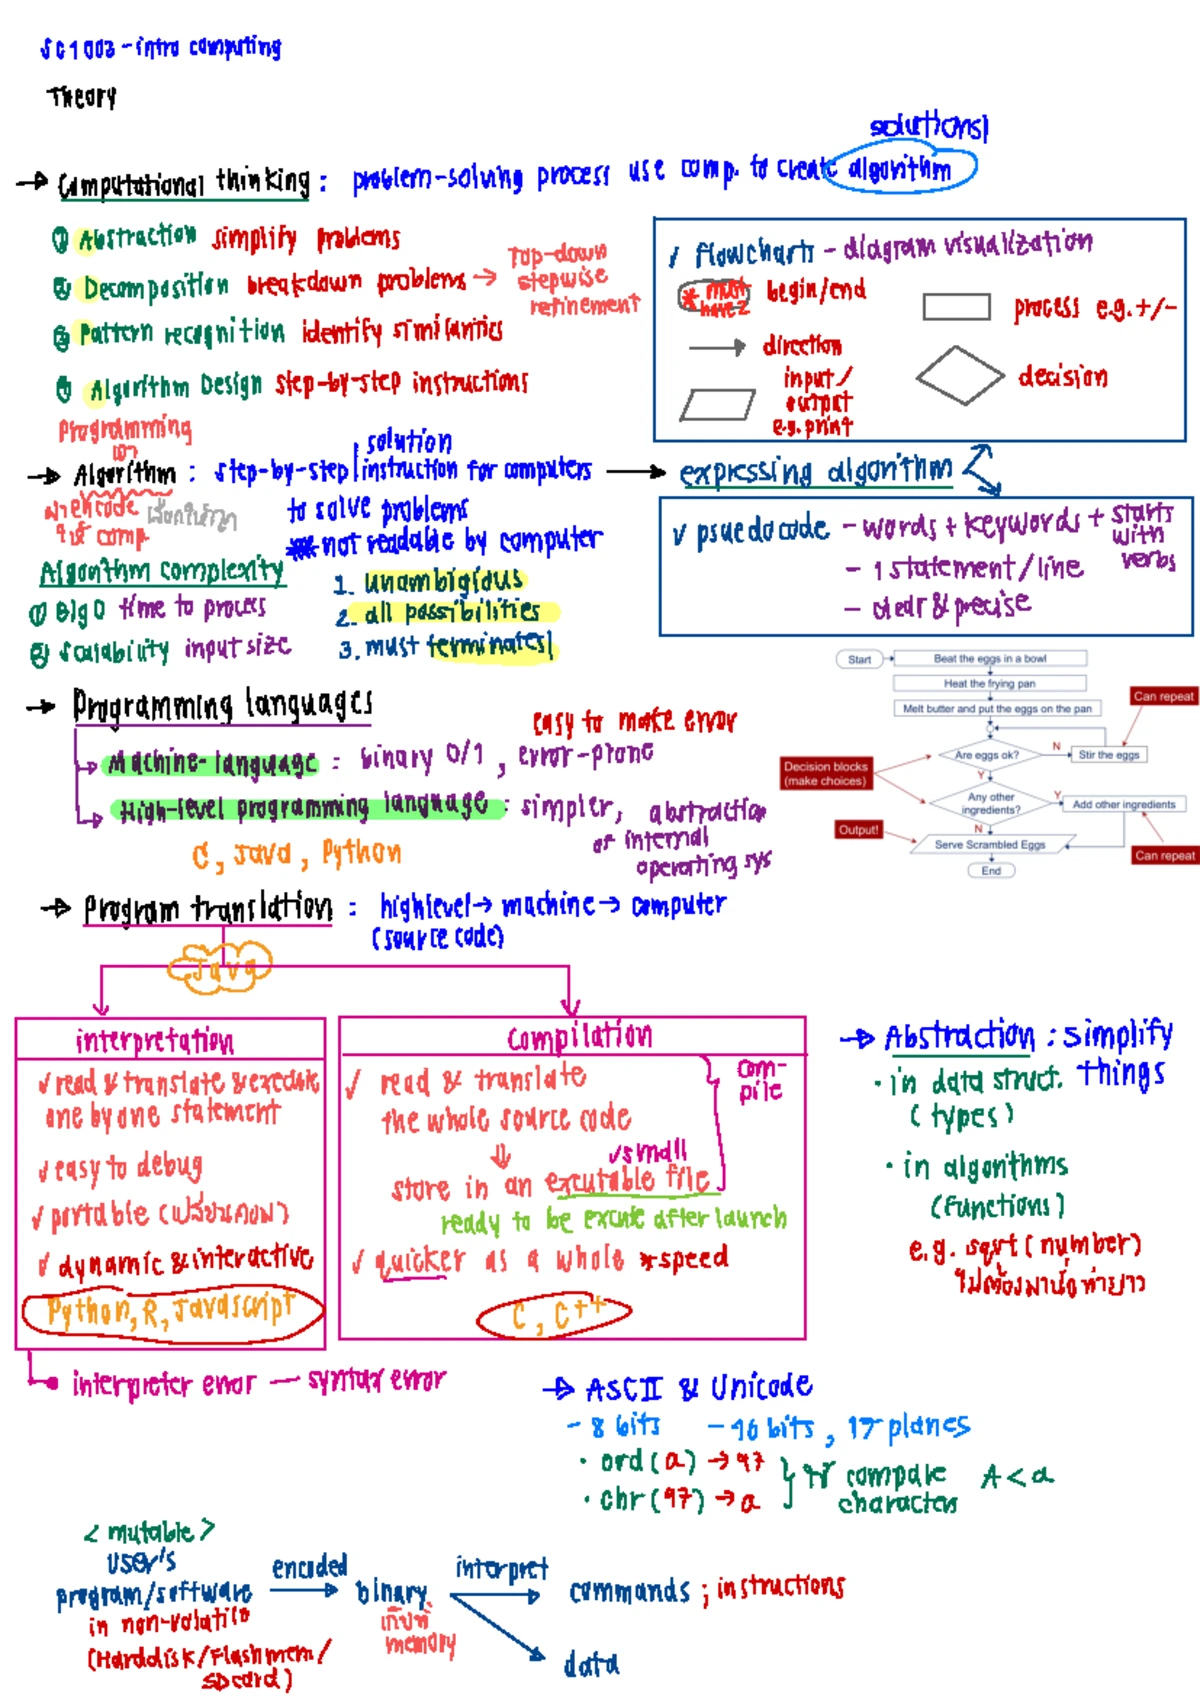 SC1003 - intro computing
Theory
solutions!
→ Computational thinking : problem-solving process use comp. to create algorithm
① Abstraction simplify problems
② Decomposition breakdown problems → Top-down stepwise refinement
③ Pattern recognition identify similarities
④ Algorithm Design step-by-step instructions
✓ flowcharts - diagram visualization
* must have 2
begin/end
process e.g. +/-
direction
decision
input/
output
e.g. print
Programming
เอา
solution
→ Algorithm : step-by-step instruction for computers → expressing algorithm
to solve problems
not readable by computer
code
ให้ comp.
1. unambigious
2. all possibilities
3. must terminates!
Algorithm complexity
① Big O time to process
② Scalability input size
✓ psuedocode - words + keywords + starts with verbs
- 1 statement/line
- clear & precise
→ Programming languages
easy to make error
Machine-language : binary 0/1 , error-prone
High-level programming language : simpler, abstraction
of internal
operating sys
C, Java, Python
Start
Beat the eggs in a bowl
Heat the frying pan
Melt butter and put the eggs on the pan
Can repeat
Are eggs ok?
N
Stir the eggs
Y
Decision blocks
(make choices)
Any other
ingredients?
Y
Add other ingredients
N
Output!
Serve Scrambled Eggs
Can repeat
End
→ Program translation : highlevel → machine → computer
(source code)
Java
interpretation
✓ read & translate & execute
one by one statement
✓ easy to debug
✓ portable (เปลี่ยนคอม)
✓ dynamic & interactive
Python, R, Javascript
interpreter error — syntax error
compilation
✓ read & translate
the whole source code
⇓ ✓small
store in an excutable file
com-
pile
ready to be excute after launch
✓ quicker as a whole *speed
C, C++
→ Abstraction : simplify
things
· in data struct.
(types)
· in algorithms
(functions)
e.g. sqrt(number)
ไม่ต้องมานั่งทำยาว
→ ASCII & Unicode
- 8 bits - 16 bits, 17 planes
· ord(a) → 97
· chr(97) → a
ใช้ compare
characters
A < a
<mutable>
user's
program/software
in non-volatile
(Harddisk/Flashmem/
SDcard)
encoded
binary
เก็บที่
memory
interpret
commands ; instructions
data